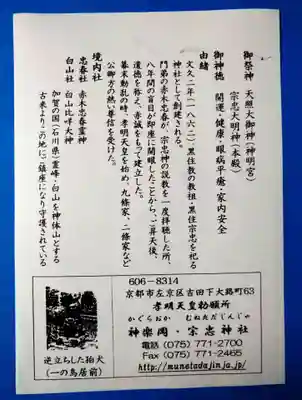 御祭神　天照大御神（神明宮）
宗忠大明神（本殿）
御神徳　開運・健康・眼病平癒・家内安全
由緒
文久二年（一八六二）黒住教の教祖・黒住宗忠を祀る
神社として創建される。
門弟の赤木忠春が、宗忠神の説教を一度拝聴した所、
八年間の盲目が即座に開眼したことから、ご昇天後、
道徳を称え、赤誠をもって建立した。
幕末動乱の時、孝明天皇を始め、九條家、二條家など
公卿方の熱き尊信を受けた。
境内社
忠春社　赤木忠春霊神
白山社　白山比咩大神
加賀の国（石川県）霊峰・白山を神体山とする
古来よりこの地にご鎮座になり守護されている
逆立ちした狛犬
（一の鳥居前）
606-8314
京都市左京区吉田下大路町63
孝明天皇勅願所
かぐらおか　むねただじんじゃ
神楽岡・宗忠神社
電話 (075) 771-2700
Fax (075) 771-2465
http://munetadajinja.jp/